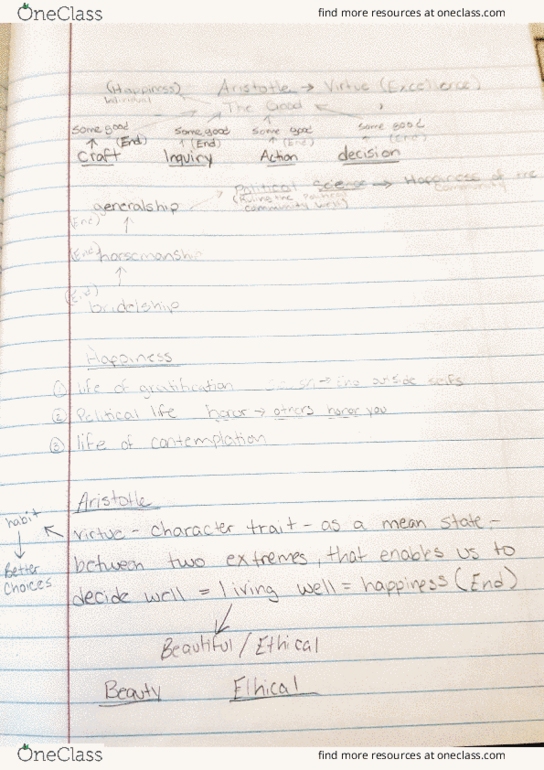 OneClass find more resources at oneclass.com
(Happiness) Aristotle → Virtue (Excellence)
Individual The Good
some good some good some good some good
(End) (End) (End) (End)
Craft Inquiry Action decision
Political science → Happiness of the
community
generalship (Ruling the political
community well)
(End)
(End) horsemanship
(End)
bridelship
Happiness
① life of gratification outside selfs
② Political life honor → others honor you
③ life of contemplation
Aristotle
habit
virtue - character trait - as a mean state -
Better between two extremes, that enables us to
Choices decide well = living well = happiness (End)
Beautiful / Ethical
Beauty Ethical
OneClass find more resources at oneclass.com